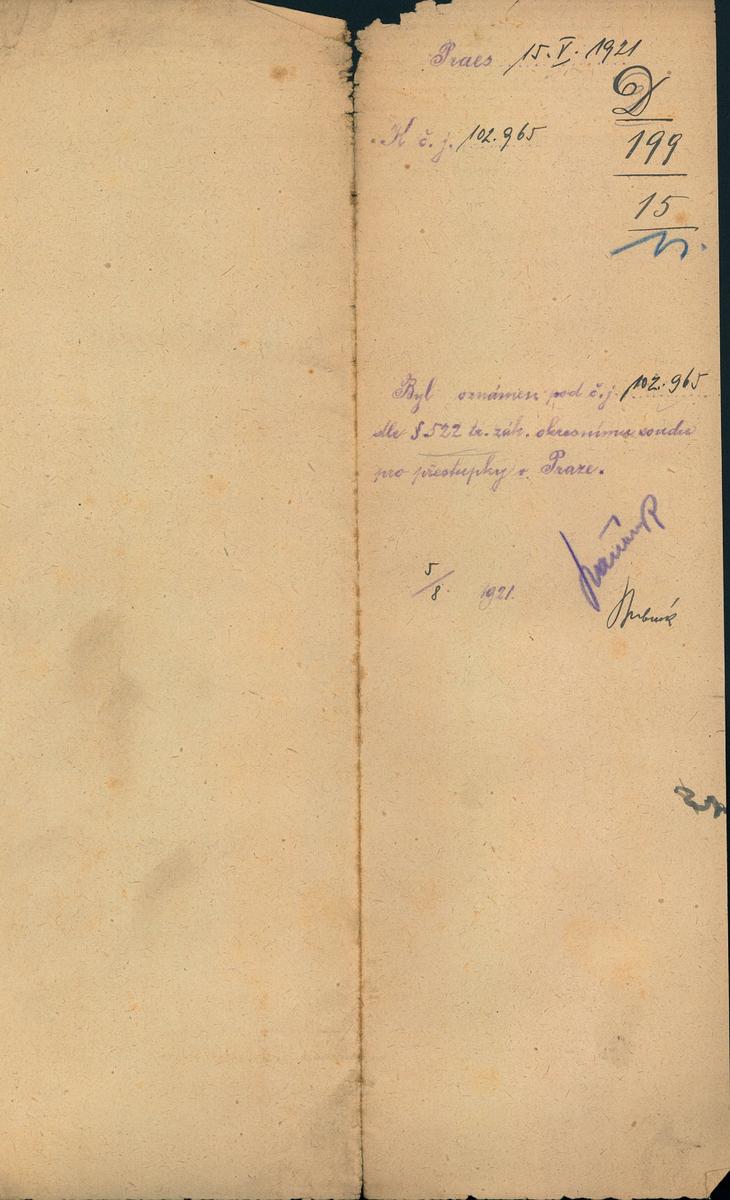 Praes 15. V. 1921
D
199
15
K č. j. 102.965
Byl oznámen pod č.j. 102.965
dle § 522 tr. zák. okresnímu soudu
pro přestupky v Praze.
5/8 1921.